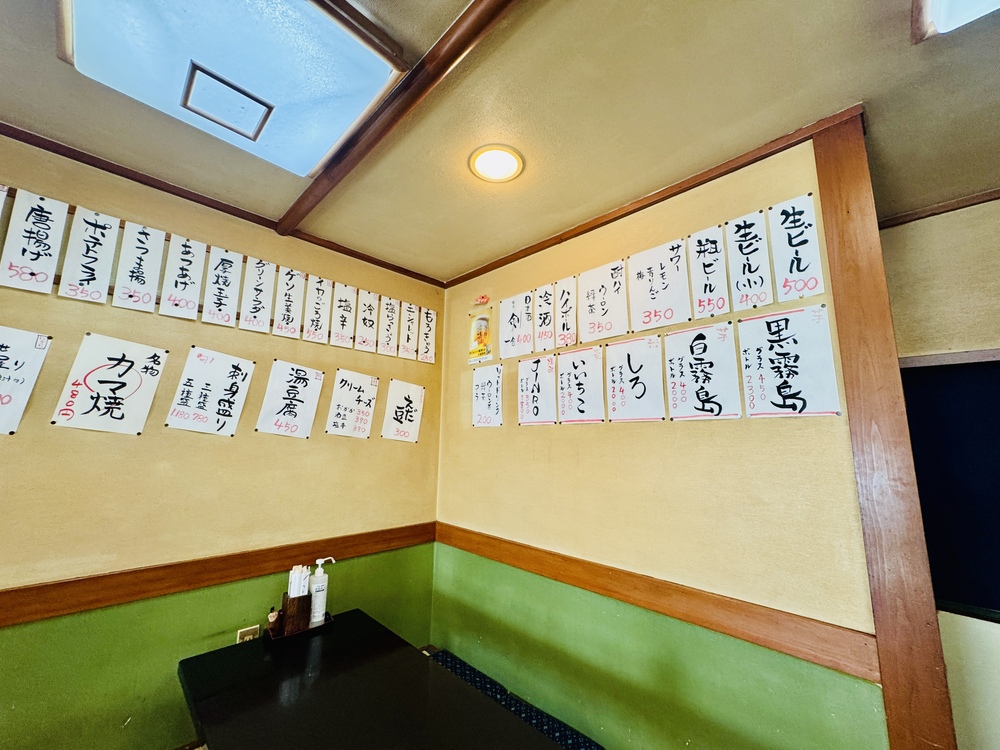 唐揚げ
580
ポテトフライ
350
さつま揚
350
あつあげ
400
厚焼玉子
400
グリーンサラダ
400
ゲソ生姜焼
450
イカのごろ焼
350
塩辛
350
冷奴
250
塩らっきょう
エシャレット
もろきゅう
名物
カマ焼
480円
刺身盛り
三種盛
780
五種盛
1180
湯豆腐
450
クリームチーズ
おかか 350
塩辛
枝豆
300
生ビール
500
生ビール(小)
400
瓶ビール
550
サワー
レモン
青りんご
梅
350
酎ハイ
ウーロン
緑茶
350
ハイボール
380
冷酒
450
日本酒
剣
一合
400
黒霧島
グラス 450
ボトル 2300
白霧島
グラス 400
ボトル 2000
しろ
グラス 400
ボトル 2000
いいちこ
グラス 400
ボトル 2000
JINRO
ソフトドリンク
コーラ
200